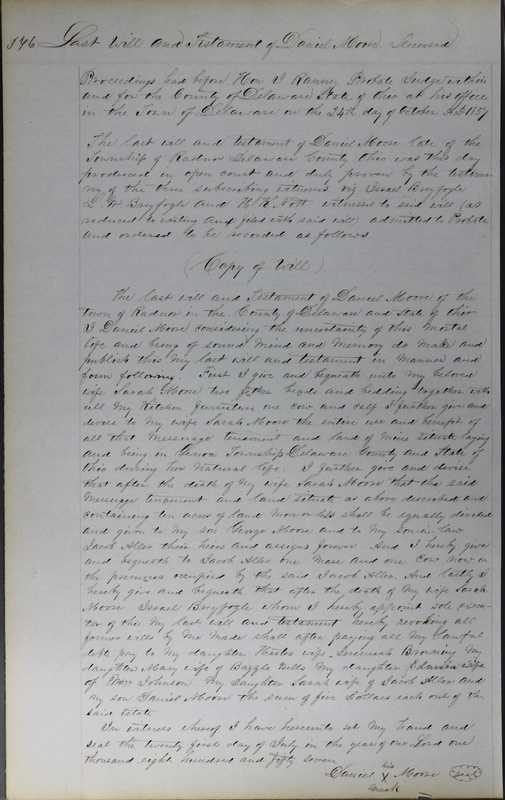 546 Last Will and Testament of Daniel Moore Deceased
Proceedings had before Hon J Ranney Probate Judge within
and for the County of Delaware State of Ohio at his office
in the Town of Delaware on the 24th day of October AD 1857
The last will and testament of Daniel Moore late of the
Township of Radnor Delaware County Ohio was this day
produced in open court and duly proven by the testimo
ny of the three subscribing witnesses viz Israel Breyfogle
L W Breyfogle and W K Nott witnesses to said will (as
reduced to writing and filed with said will) admitted to Probate
and ordered to be recorded as follows
(Copy of Will)
The last will and Testament of Daniel Moore of the
town of Radnor in the County of Delaware and State of Ohio
I Daniel Moore considering the uncertainty of this Mortal
life and being of sound mind and Memory do make and
publish this my last will and testament in manner and
form following. First I give and bequeath unto my beloved
wife Sarah Moore two fether beads and bedding together with
all my Kitchen furniture one cow and calf I further give and
devise to my wife Sarah Moore the entire use and benefit of
all that Messuage tenament and land of mine Situate laying
and being in Genoa Township Delaware County and State of
Ohio during her natural life. I further give and devise
that after the death of my wife Sarah Moore that the said
Messuage tenament and land Situat as above described and
containing ten acres of land more or less shall be equally divided
and given to my son George Moore and to my son in law
Jacob Aller their heirs and assigns forever. And I hereby give
and bequeath to Jacob Aller one Mare and one Cow now on
the premises occupied by the said Jacob Aller. And lastly I
hereby give and bequeath that after the death of my wife Sarah
Moore Israel Breyfogle whom I hereby appoint sole execu
tor of this my last will and testament hereby revoking all
former wills by me made shall after paying all my lawful
debts pay to my daughter Hester wife Jeremiah Browning my
daughter Mary wife of Wells my daughter wife
of Johnson My Daughter Sarah wife of Jacob Aller and
my son Daniel Moore the sum of five Dollars each out of the
said estate
In witness whereof I have hereunto set my hand and
seal the twenty first day of July in the year of our Lord one
thousand eight hundred and fifty seven
Daniel his X mark Moore seal